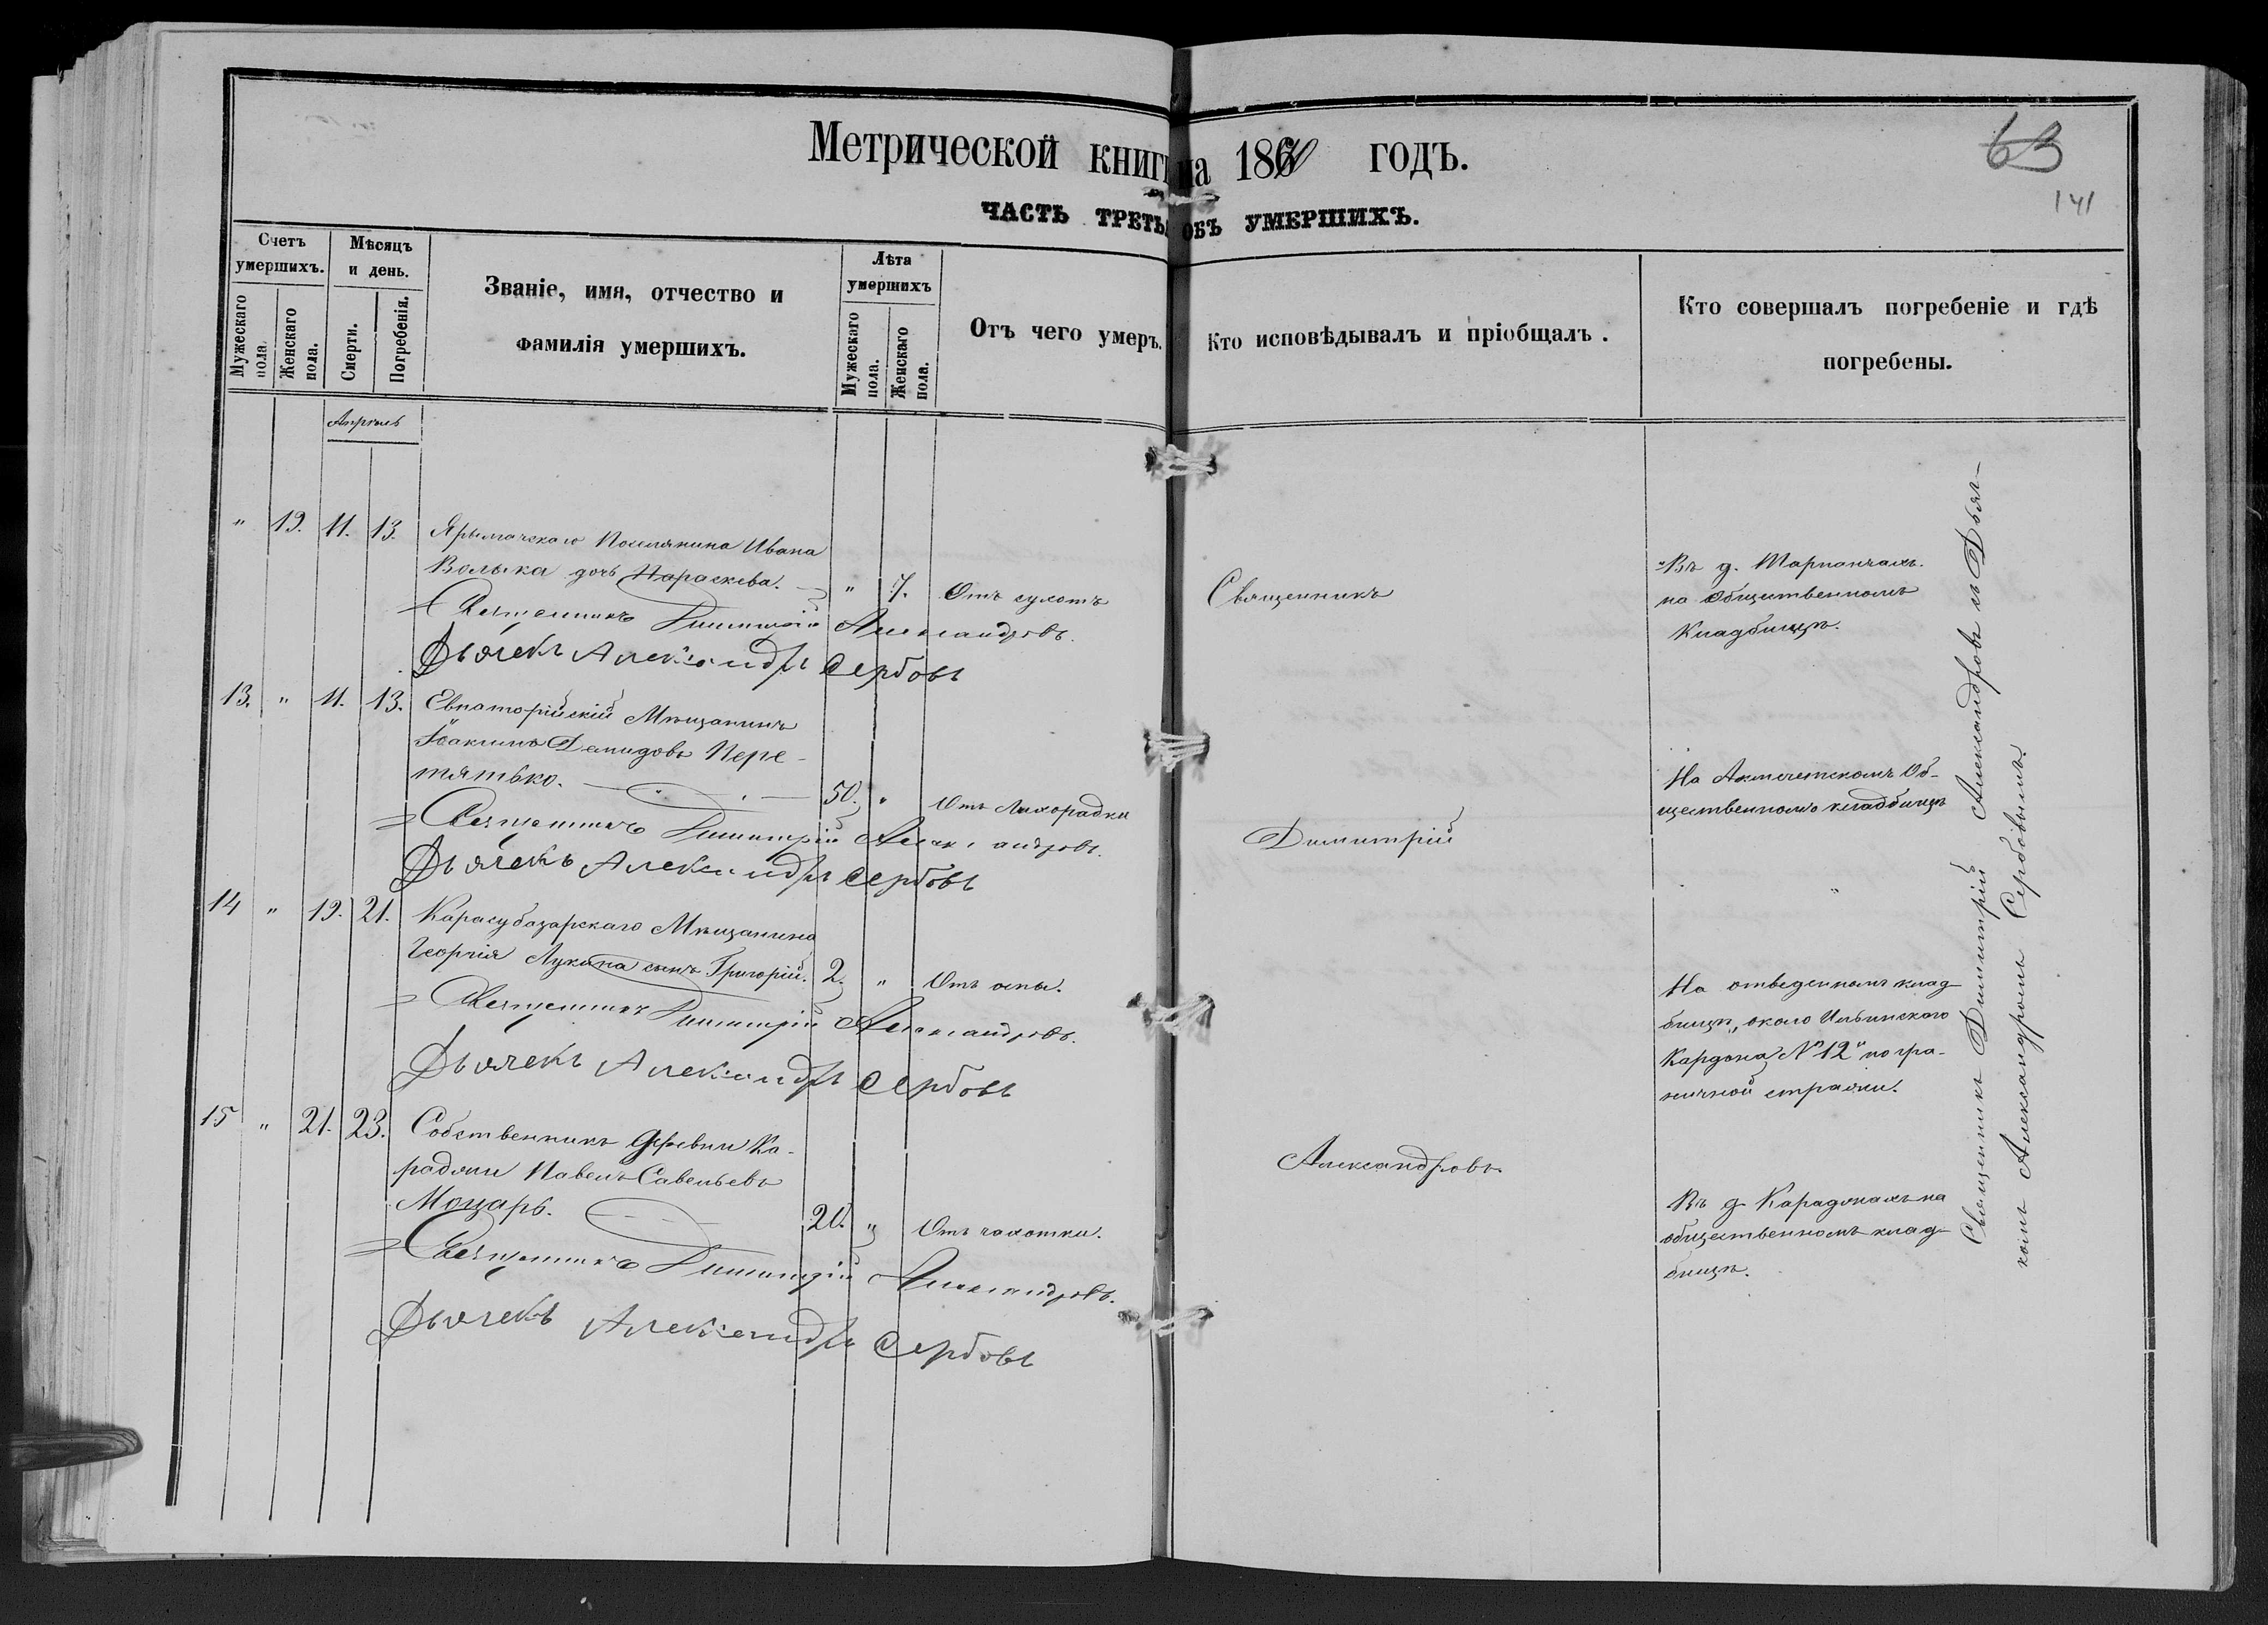 63
141
Метрической книги на 1870 годъ.
ЧАСТЬ ТРЕТЬЯ ОБЪ УМЕРШИХЪ.
Счетъ умершихъ.
Мужескаго пола.
Женскаго пола.
Мѣсяцъ и день.
Смерти.
Погребенія.
Званіе, имя, отчество и
фамилія умершихъ.
Лѣта умершихъ
Мужескаго пола.
Женскаго пола.
Отъ чего умеръ.
Кто исповѣдывалъ и пріобщалъ.
Кто совершалъ погребеніе и гдѣ
погребены.
Апрѣль
" 19. 11. 13. Ярылгачскаго Поселянина Ивана
Волыка дочь Параскева. " 7. Отъ сухотъ
Священникъ Димитрій Александровъ.
Дьячекъ Александръ Сербовъ
13. " 11. 13. Евпаторійскій Мѣщанинъ
Іоакимъ Демидовъ Пере-
тятько. 50. " Отъ Лихорадки
Священникъ Димитрій Александровъ.
Дьячекъ Александръ Сербовъ
14 " 19. 21. Карасубазарскаго Мѣщанина
Георгія Лукина сынъ Григорій. 2. " Отъ оспы.
Священникъ Димитрій Александровъ.
Дьячекъ Александръ Сербовъ
15 " 21. 23. Собственникъ деревни Ка-
раджи Павелъ Савельевъ
Моцарь. 20. " Отъ чахотки.
Священникъ Димитрій Александровъ.
Дьячекъ Александръ Сербовъ
Священникъ
Димитрій
Александровъ
Въ д. Тарпанчахъ
на общественномъ
Кладбищѣ.
На Акмечетскомъ Об-
щественномъ кладбищѣ
"
На отведенномъ клад-
бищѣ, около Ильинскаго
Кардона №12" погра-
ничной стражи.
Въ д. Караджахъ на
общественномъ клад-
бищѣ.
Священникъ Димитрій Александровъ съ Дьяч-
комъ Александромъ Сербовымъ.